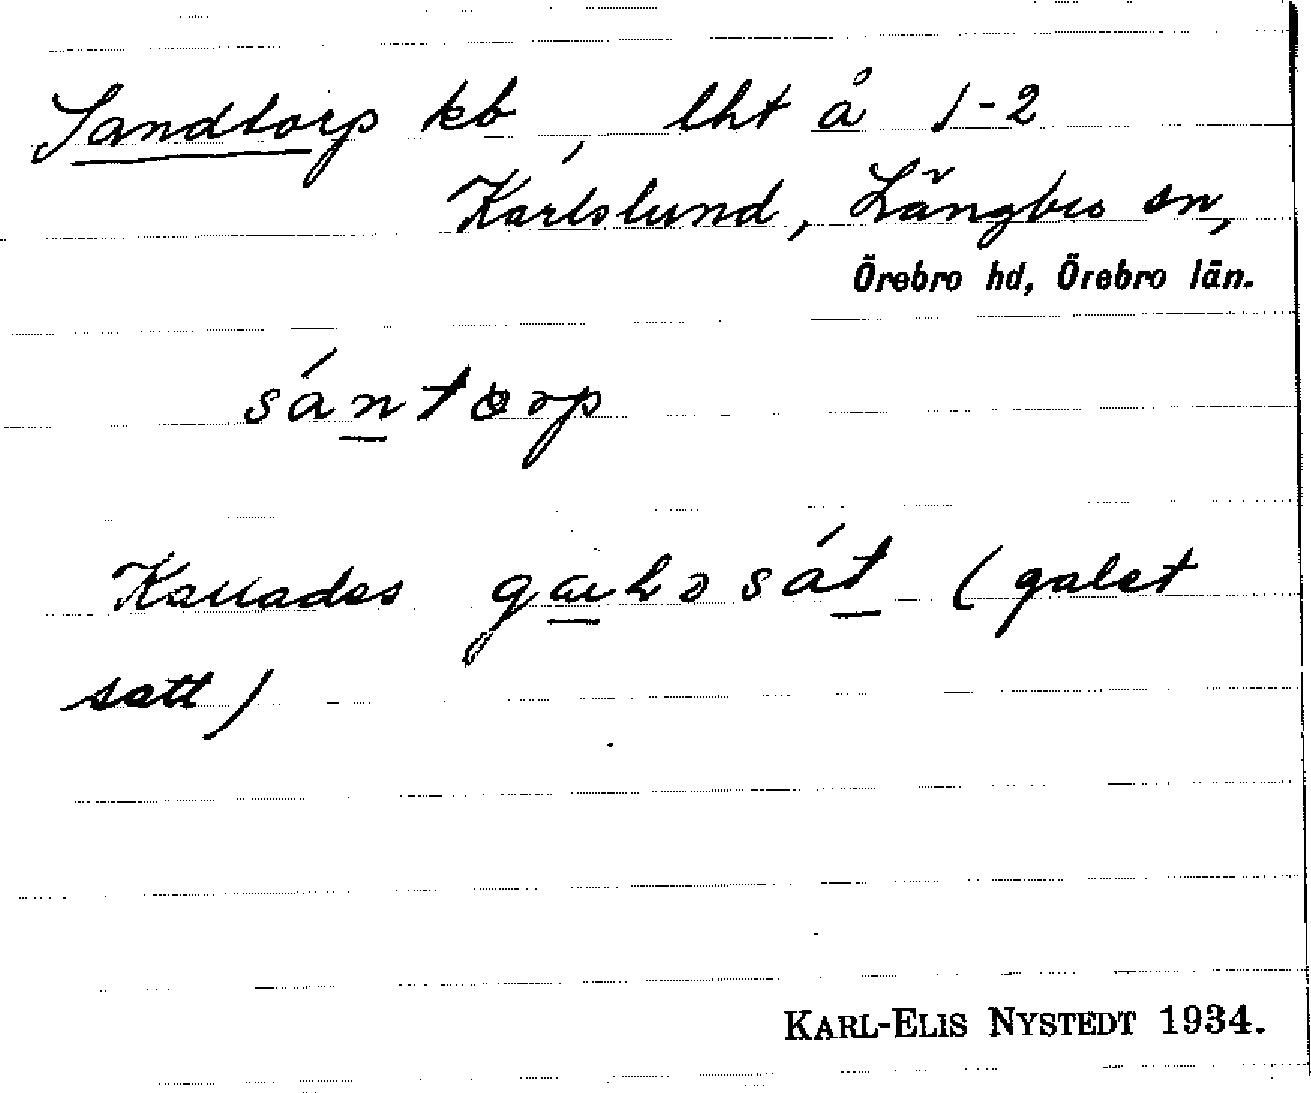 Sandtorp kb, lht å 1-2
Karlslund, Längbro sn,
Örebro hd, Örebro län.
sántɵrp
Kallades gahəsát (galet
satt)
KARL-ELIS NYSTEDT 1934.